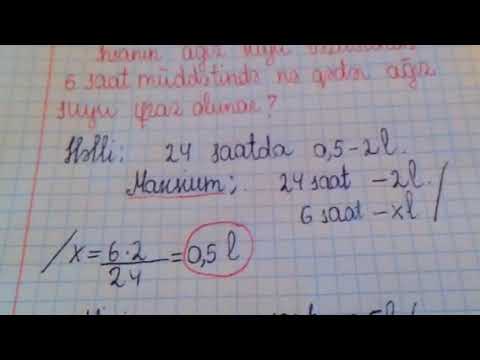 ağız suyu
6 saat müddətində nə qədər ağız
suyu ifraz olunar?
Həlli: 24 saatda 0,5-2l.
Maksium; 24 saat - 2l.
6 saat - xl
x = 6·2 / 24 = 0,5 l